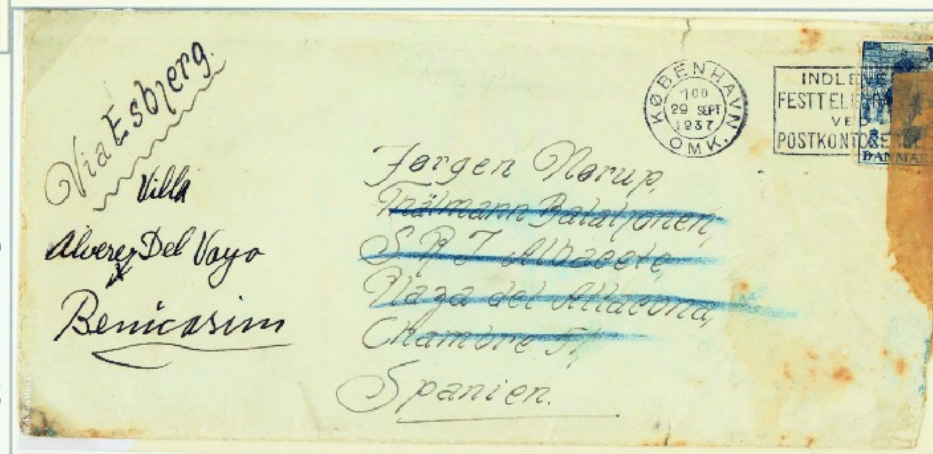 Via Esbjerg.
Villa
Alverez Del Vayo
Benicasim
KØBENHAVN
7 00
29 SEPT
1937
OMK.
INDLEVE
FESTTELE
VED
POSTKONTORERNE
DANMARK
Jørgen Norup,
Thälmann Bataljonen,
S.R.I Albacete,
Plaza del Altacona,
Chambre 51,
Spanien.